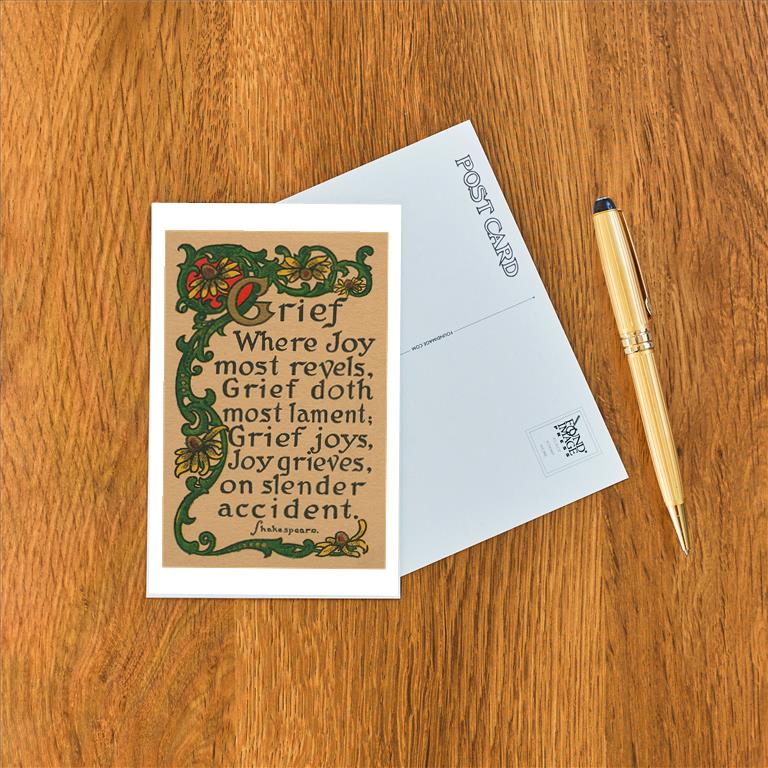 Grief
Where Joy
most revels,
Grief doth
most lament;
Grief joys,
Joy grieves,
on slender
accident.
Shakespeare.
POST CARD
FOUNDIMAGE.COM
FOUND
IMAGE
PRESS